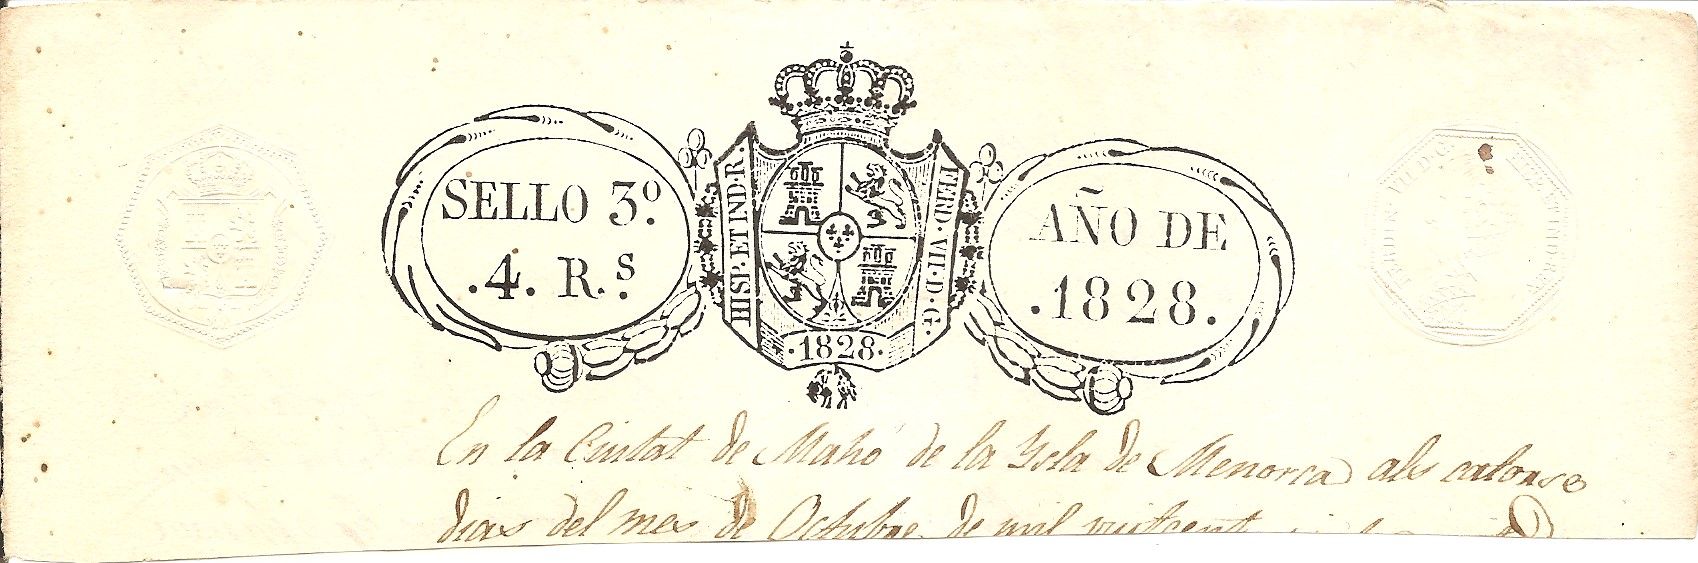 SELLO 3º
.4. R.s
HISP. ET IND. R.
FERD. VII. D. G.
.1828.
AÑO DE
.1828.
En la Ciutat de Mahó de la Ysla de Menorca als catorse
dias del mes de Octubre de mil vuitcent